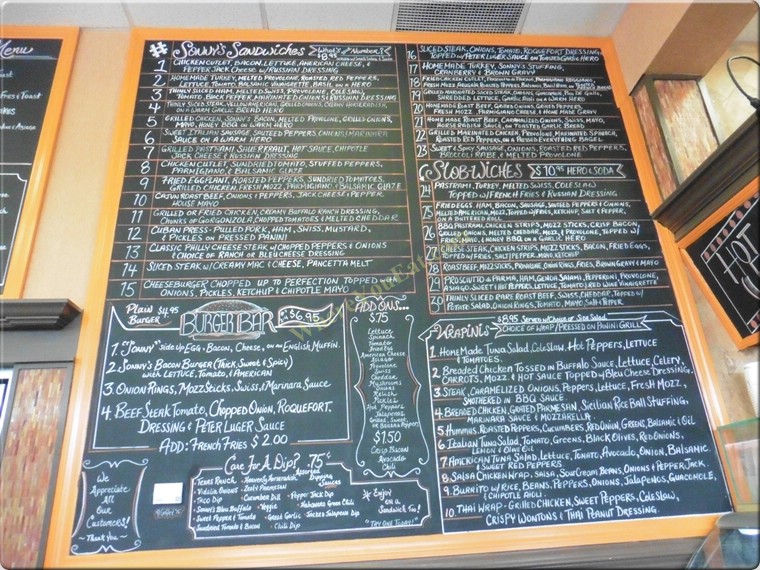 Menu
# Sonny's Sandwiches What's your Number!
$8.95
1 Chicken Cutlet, Bacon, Lettuce, American Cheese, &
Pepper Jack Cheese w/ Russian Dressing
2 Homemade Turkey, Melted Provolone, Roasted Red Peppers,
Lettuce, Tomato, Balsamic Vinaigrette, Basil on a Hero
3 Thinly Sliced Ham, Melted Swiss, Provolone, Coleslaw,
Tomato, Jack Pepper Marinated Onions & Russian Dressing
4 Thinly Sliced Steak, Yellow American, Grilled Onions, Creamy Horseradish,
on a Warm Garlic Bread Hero
5 Grilled Chicken, Sonny's Bacon, Melted Provolone, Grilled Onions,
Mayo, Honey BBQ on Warm Hero
6 Sweet Italian Sausage Sauteed Peppers, Onions, Marinara
Sauce on a Warm Hero
7 Grilled Pastrami Sauerkraut, Hot Sauce, Chipotle
Jack Cheese & Russian Dressing
8 Chicken Cutlet, Sundried Tomato, Stuffed Peppers,
Parmigiano, & Balsamic Glaze
9 Fried Eggplant, Roasted Peppers, Sundried Tomatoes,
Grilled Chicken, Fresh Mozz, Parmigiano & Balsamic Glaze
10 Cajun Roast Beef, Onions & Peppers, Jack Cheese & Pepper
House Mayo
11 Grilled or Fried Chicken, Creamy Buffalo Ranch Dressing,
Chunks of Gorgonzola, Chopped Tomatoes & Melted Cheddar
12 Cuban Press - Pulled Pork, Ham, Swiss, Mustard,
& Pickles on Pressed Panini
13 Classic Philly Cheese Steak w/ Chopped Peppers & Onions
& Choice of Ranch or Bleu Cheese Dressing
14 Sliced Steak w/ Creamy Mac & Cheese, Pancetta Melt
15 Cheeseburger Chopped up to Perfection Topped w/
Onions, Pickles, Ketchup & Chipotle Mayo
16 Sliced Steak, Onions, Tomato, Roquefort Dressing,
Topped w/ Peter Luger Sauce on Toasted Garlic Hero
17 Homemade Turkey, Sonny's Stuffing,
Cranberry & Brown Gravy
18 Fried Chicken Cutlet,
19
Shredded Lettuce, Garlic Aioli on a Warm Hero
20 Homemade Roast Beef, Grilled Onions, Green Peppers,
Fresh Mozz, Parmigiano Cheese & Home Made Gravy
21 Home Made Roast Beef, Caramelized Onions, Swiss, Mayo,
Horseradish Sauce on Toasted Garlic Bread
22 Grilled Marinated Chicken, Provolone, Marinated Spinach,
Roasted Red Peppers, on a Pressed Everything Bagel
23 Sweet & Spicy Sausage, Onions, Roasted Red Peppers,
Broccoli Rabe & Melted Provolone
Slobwiches $10.95 Hero & Soda
24 Pastrami, Turkey, Melted Swiss, Cole Slaw
Topped w/ French Fries & Russian Dressing
25 Fried Eggs, Ham, Bacon, Sausage, Sauteed Peppers & Onions,
Melted American, Mozz, Topped w/ Fries, Ketchup, Salt & Pepper,
on a Bread Roll
26 BBQ Pastrami, Chicken Strips, Mozz Sticks, Crisp Bacon,
Grilled Onions, Melted Cheddar, Mozz, & Provolone, Topped w/
Fries, Mayo, & Honey BBQ on a Garlic Hero
27 Cheese Steak, Chicken Strips, Mozz Sticks, Bacon, Fried Eggs,
Topped w/ Fries, Salt/Pepper, Mayo, Ketchup
28 Roast Beef, Mozz Sticks, Provolone, Onion Rings, Fries, Brown Gravy & Mayo
29 Prosciutto di Parma, Ham, Genoa Salami, Pepperoni, Provolone,
Asiago, Sweet & Hot Peppers, Lettuce, Tomato, & Red Wine Vinaigrette
30 Thinly Sliced Rare Roast Beef, Swiss, Cheddar, Topped w/
Potato Salad, Onion Rings, Tomato, Mayo, Salt & Pepper
Plain Burger $4.95
Burger Bar $6.95
1. "Sonny" side up Egg, Bacon, Cheese, on an English Muffin.
2. Sonny's Bacon Burger (Thick, Sweet & Spicy)
with Lettuce, Tomato, & American
3. Onion Rings, Mozz Sticks, Swiss, & Marinara Sauce
4. Beef Steak Tomato, Chopped Onion, Roquefort,
Dressing & Peter Luger Sauce
Add: French Fries $2.00
Add Ons...
$.75
Lettuce
Spinach
Tomato
American Cheese
Swiss
Provolone
Cheddar
Mushrooms
Onions
Relish
Pickles
Hot Peppers
Jalapenos
$1.50
Crisp Bacon
Avocado
Chili
Wrapinis
$8.95 Served w/ Choice of Side Salad
- Choice of Wrap / Pressed on Panini Grill
1. HomeMade Tuna Salad, Coleslaw, Hot Peppers, Lettuce
& Tomatoes.
2. Breaded Chicken Tossed in Buffalo Sauce, Lettuce, Celery,
Carrots, Mozz & Hot Sauce Topped w/ Bleu Cheese Dressing.
3. Steak, Caramelized Onions, Peppers, Lettuce, Fresh Mozz,
Smothered in BBQ Sauce
4. Breaded Chicken, Grated Parmesan, Sicilian Rice Ball Stuffing,
Marinara Sauce & Mozzarella.
5. Hummus, Roasted Peppers, Cucumbers, Red Onion, Greens, Balsamic & Oil
6. Italian Tuna Salad, Tomato, Greens, Black Olives, Red Onions,
Lemon & Olive Oil
7. American Tuna Salad, Lettuce, Tomato, Avocado, Onion, Balsamic.
& Sweet Red Peppers
8. Salsa Chicken Wrap, Salsa, Sour Cream, Beans, Onions & Pepper Jack.
9. Burrito w/ Rice, Beans, Peppers, Onions, Jalapenos, Guacomole,
& Chipotle Aioli.
10. Thai Wrap - Grilled Chicken, Sweet Peppers, Coleslaw,
Crispy Wontons & Thai Peanut Dressing.
We
Appreciate
All
Our
Customers!
~ Thank You ~
Care For A Dip? .75¢
Assorted Dipping Sauces
- Texas Ranch
- Heavenly Horseradish
- Vidalia Onion
- Zesty Parmesan
- Taco Dip
- Cucumber Dill
- Pepper Jack Dip
- Sonny's Bleu Buffalo
- Veggie
- Habanero Green Chili
- Sweet Pepper & Tomato
- Great Garlic
- Jacked Jalapeno Dip
- Sundried Tomato & Bacon
- Chili Dip
* Enjoy
on a
Sandwich Too!
"Try One Today!"
Hot